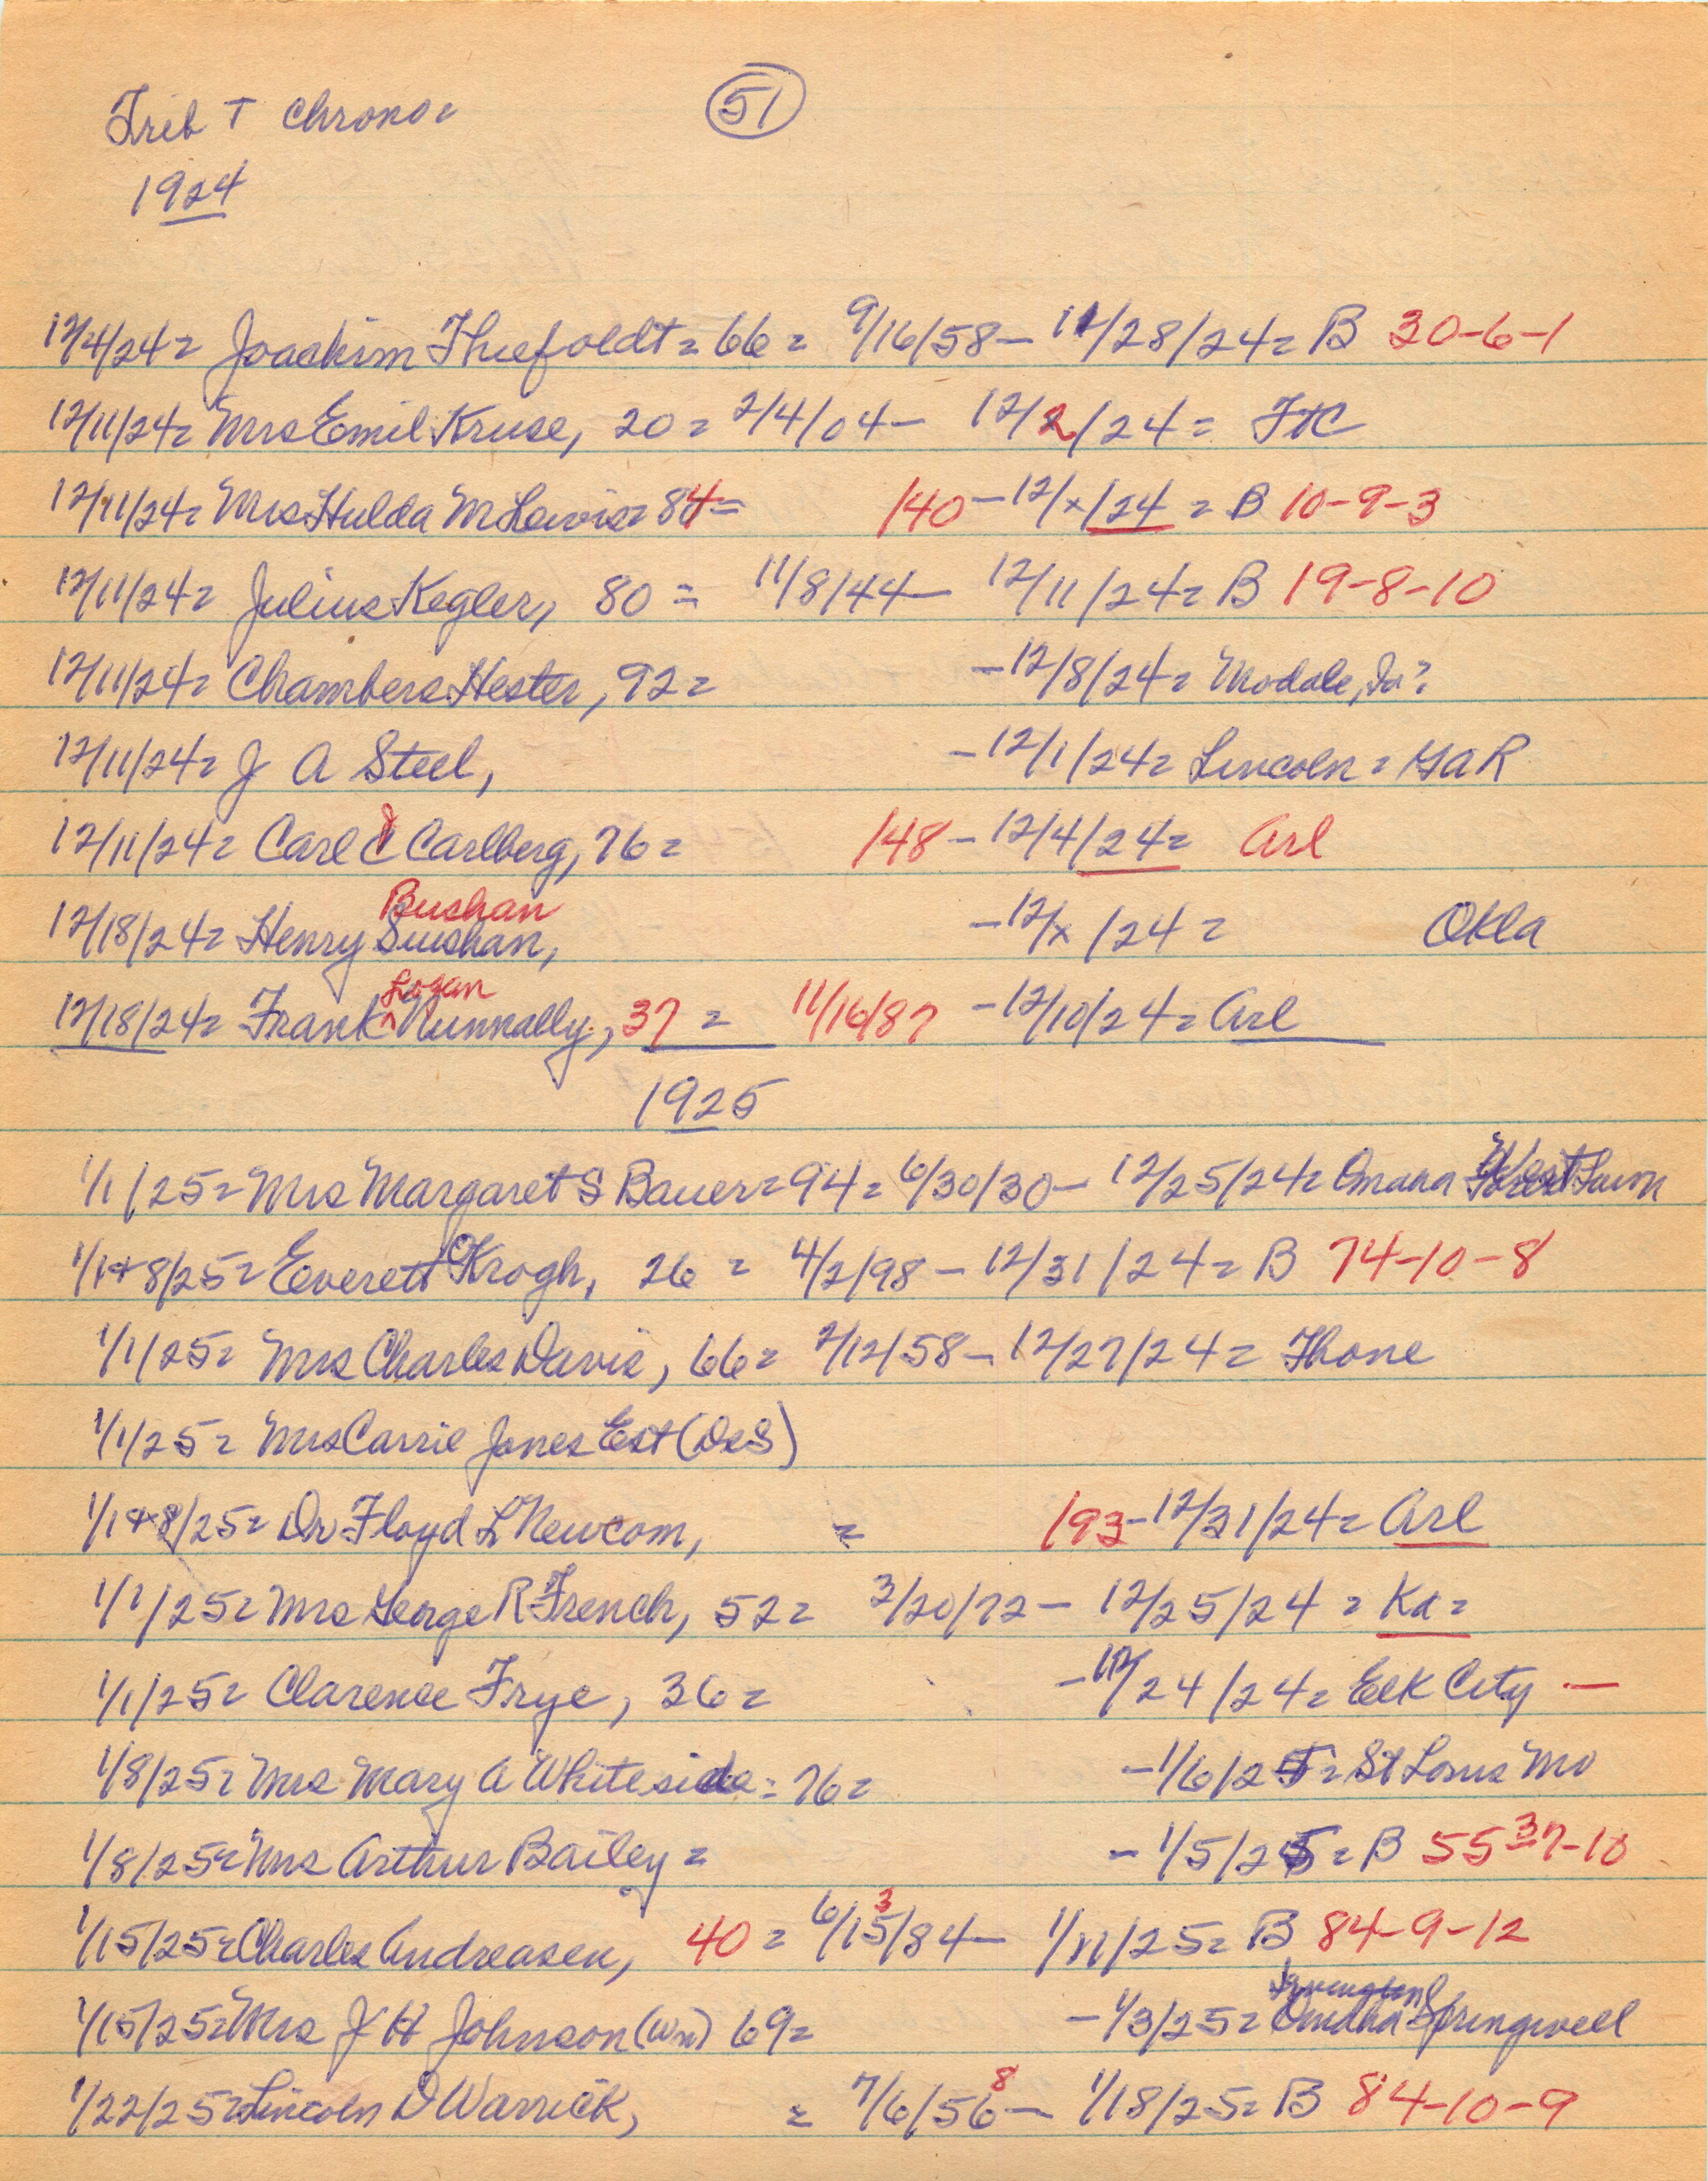 Trib + Chrono=
51
1924
12/4/24= Joachim Thiefoldt= 66= 9/16/58- 11/28/24= B 30-6-1
12/11/24= Mrs Emil Kruse, 20= 2/4/04- 12/2/24= FtC
12/11/24= Mrs Hulda M Lewis= 84= 140-12/x/24= B 10-9-3
12/11/24= Julius Kegler, 80= 11/8/44- 12/11/24= B 19-8-10
12/11/24= Chambers Hester, 92= -12/8/24= Modale, Ia=
12/11/24= J A Steel, -12/1/24= Lincoln= GAR
12/11/24= Carl J Carlberg, 76= 148-12/4/24= Arl
Bushan
12/18/24= Henry Suishan, -12/x/24= Okla
Logan
12/18/24= Frank Nunnally, 37= 11/16/87 -12/10/24= Arl
1925
1/1/25= Mrs Margaret S Bauer= 94= 6/30/30- 12/25/24= Omaha West Lawn
1/1+8/25= Everett C Krogh, 26= 4/2/98-12/31/24= B 74-10-8
1/1/25= Mrs Charles Davis, 66= 2/12/58-12/27/24= Thone
1/1/25= Mrs Carrie Jones Est (DeS)
1/1+8/25= Dr Floyd L Newcom, = 193-12/31/24= Arl
1/1/25= Mrs George R French, 52= 3/20/72- 12/25/24= Ka=
1/1/25= Clarence Frye, 36= -12/24/24= Elk City -
1/8/25= Mrs Mary A Whiteside= 76= -1/6/25= St Louis Mo
1/8/25= Mrs Arthur Bailey= -1/5/25= B 55 37-10
3
1/15/25= Charles Andreasen, 40= 6/15/84- 1/11/25= B 84-9-12
Irvington
1/15/25= Mrs J H Johnson (Wm) 69= -1/3/25= Omaha Springwell
8
1/22/25= Lincoln D Warrick, = 7/6/56- 1/18/25= B 84-10-9